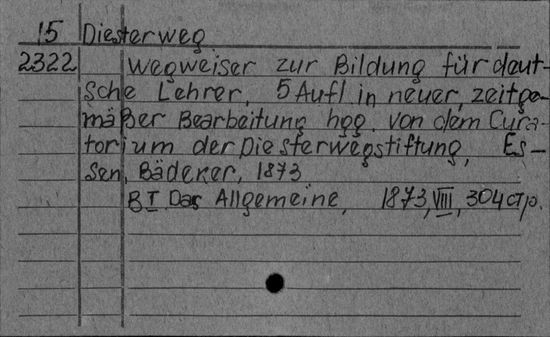 15 Diesterweg
2322 Wegweiser zur Bildung für deut-
sche Lehrer, 5 Aufl in neuer, zeitge-
mäßer Bearbeitung hgg. von dem Cura-
torium der Diesterwegstiftung, Es-
sen, Bädeker, 1873
B I. Das Allgemeine, 1873, VIII, 304 стр.